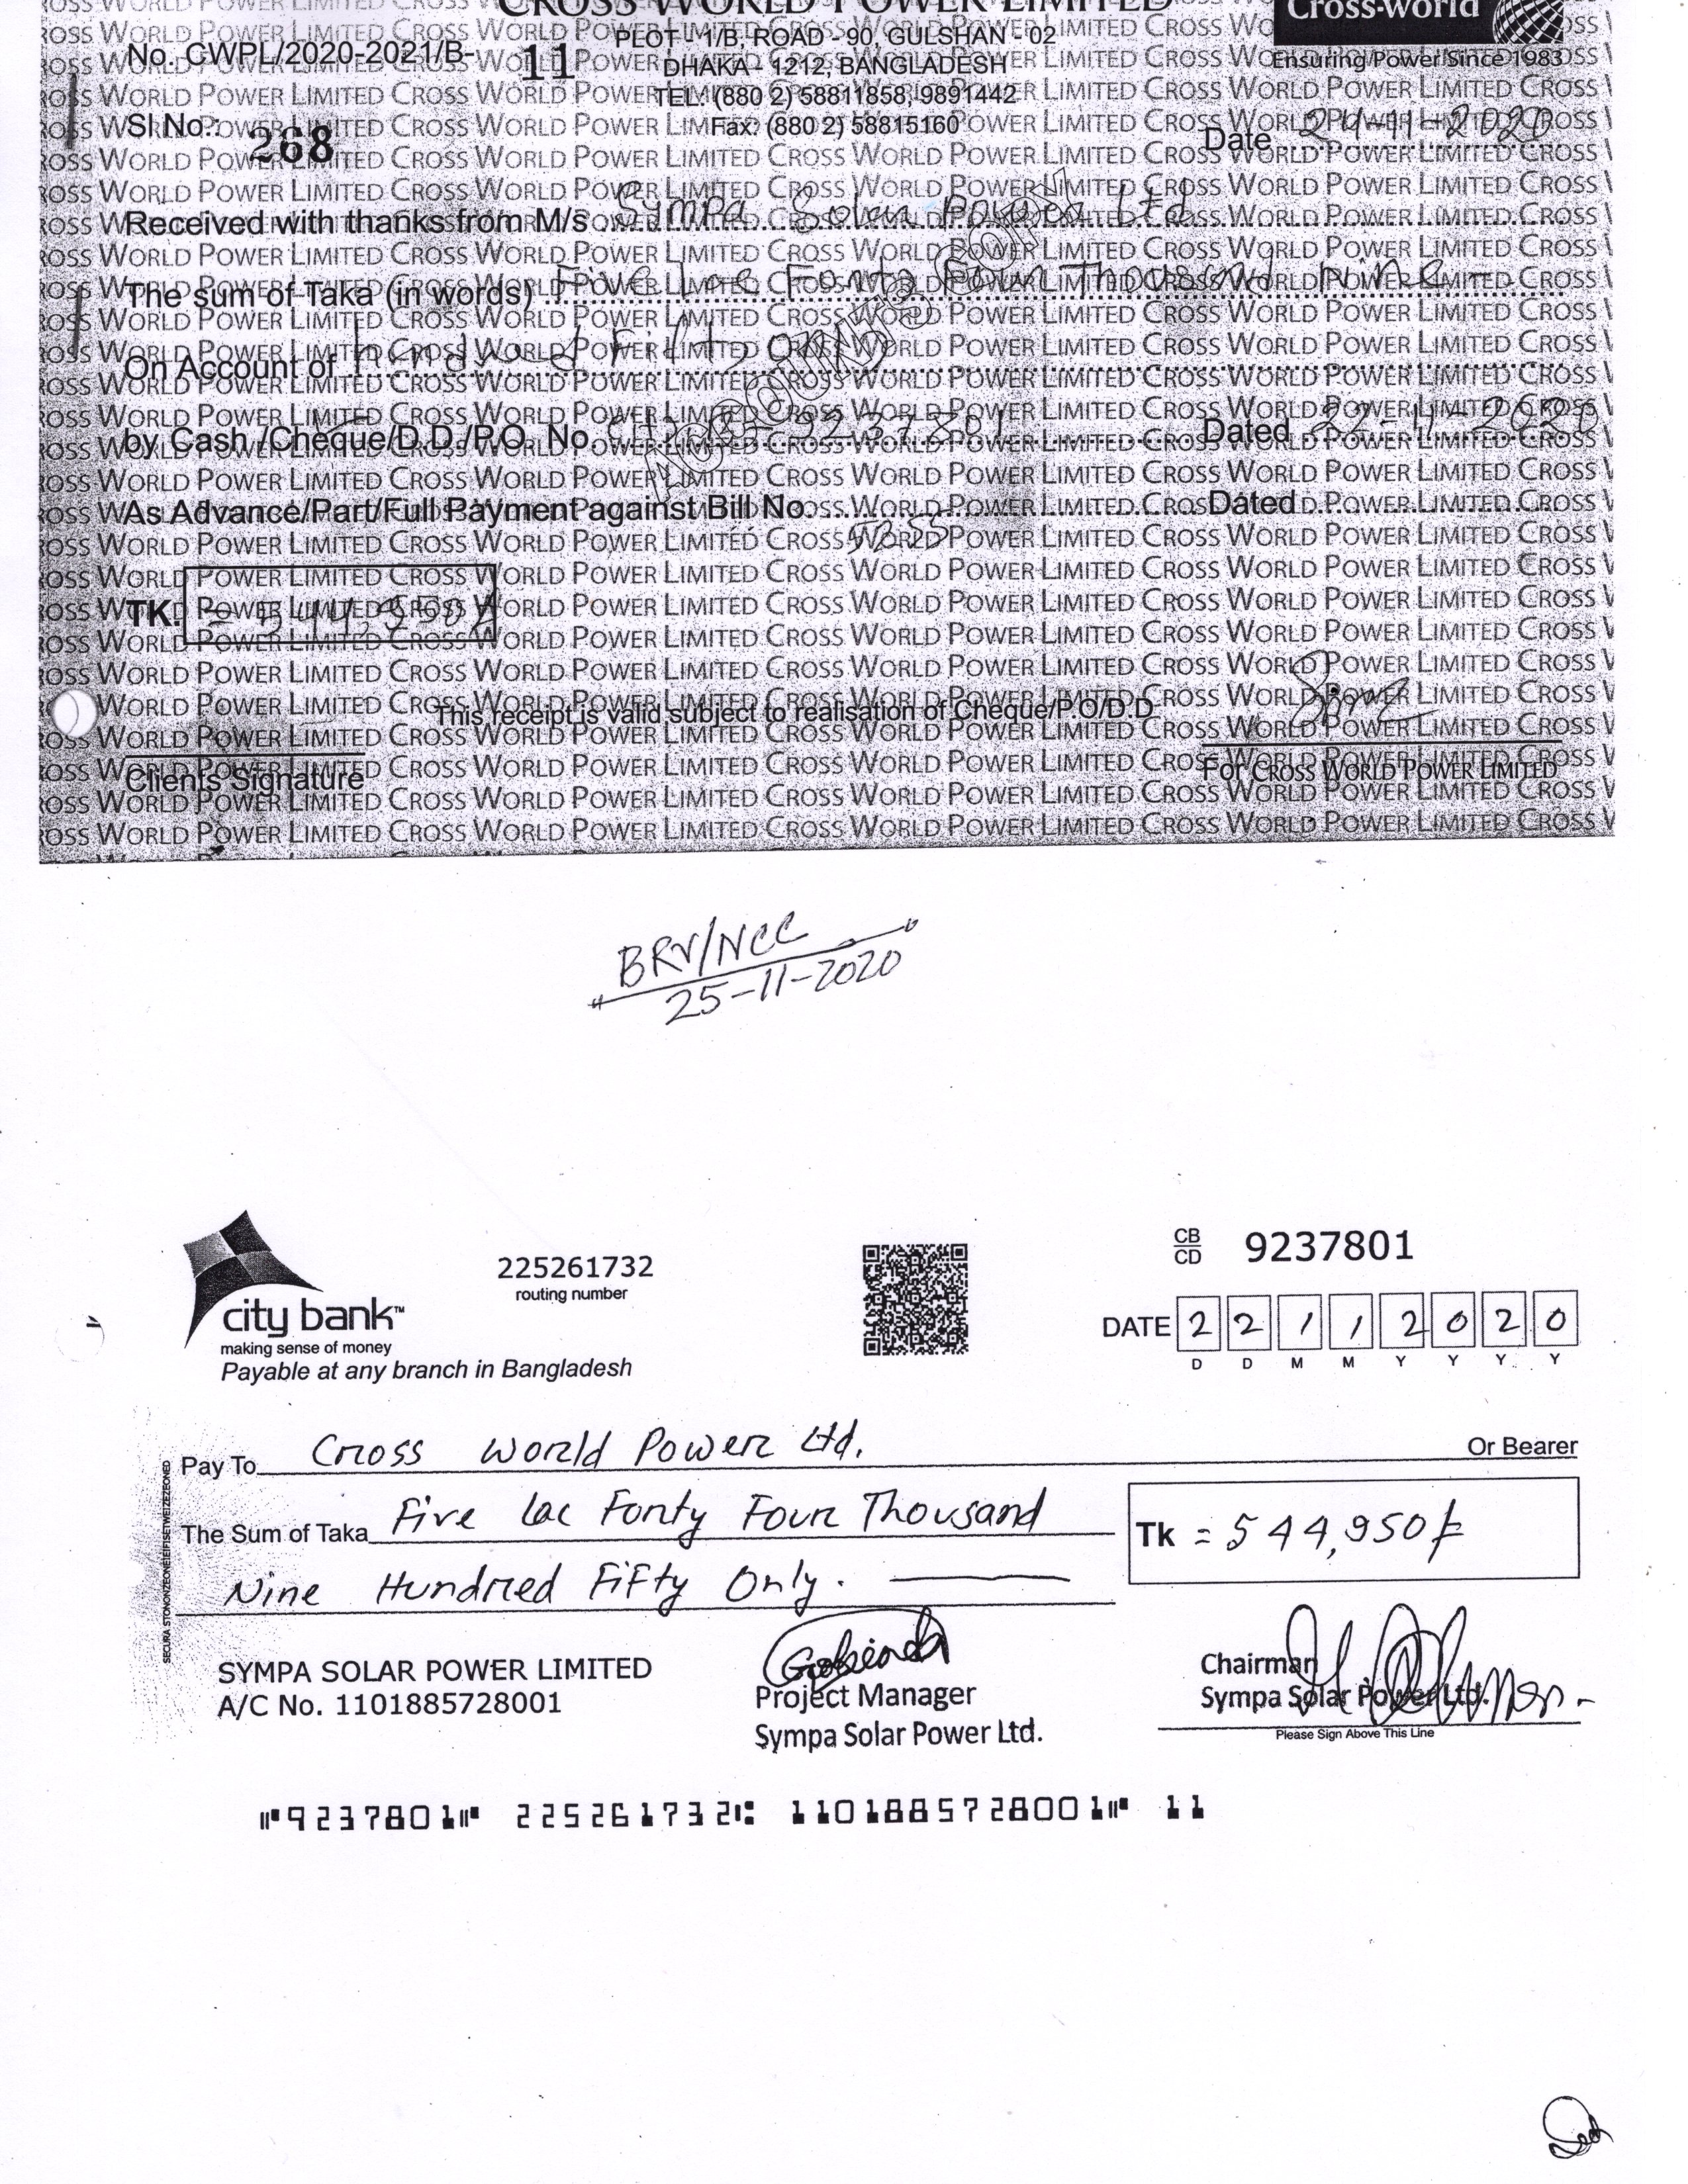 CROSS WORLD POWER LIMITED
Cross-World
Ensuring Power Since 1983
No. CWPL/2020-2021/B- 11
PLOT - 1/B, ROAD - 90, GULSHAN - 02
DHAKA - 1212, BANGLADESH
TEL: (880 2) 58811858, 9891442
Fax: (880 2) 58815160
Sl No.: 268
Date 24-11-2020
Received with thanks from M/s Sympa Solar Power Ltd.
The sum of Taka (in words) Five Lac Forty Four Thousand nine-
On Account of hundred Fifty only
by Cash /Cheque/D.D./P.O. No. 9237801 Dated 22-11-2020
As Advance/Part/Full Payment against Bill No. Dated
TK. = 544,950/
This receipt is valid subject to realisation of Cheque/P.O/D.D
Clients Signature
For CROSS WORLD POWER LIMITED
BRV/NCC
25-11-2020
city bank™
making sense of money
Payable at any branch in Bangladesh
225261732
routing number
CB
CD
9237801
DATE 2 2 1 1 2 0 2 0
D D M M Y Y Y Y
Pay To Cross World Power Ltd. Or Bearer
The Sum of Taka Five Lac Forty Four Thousand
Nine Hundred Fifty Only.
Tk = 544,950/
SYMPA SOLAR POWER LIMITED
A/C No. 1101885728001
Project Manager
Sympa Solar Power Ltd.
Chairman
Sympa Solar Power Ltd.
Please Sign Above This Line
9237801 225261732 1101885728001 11